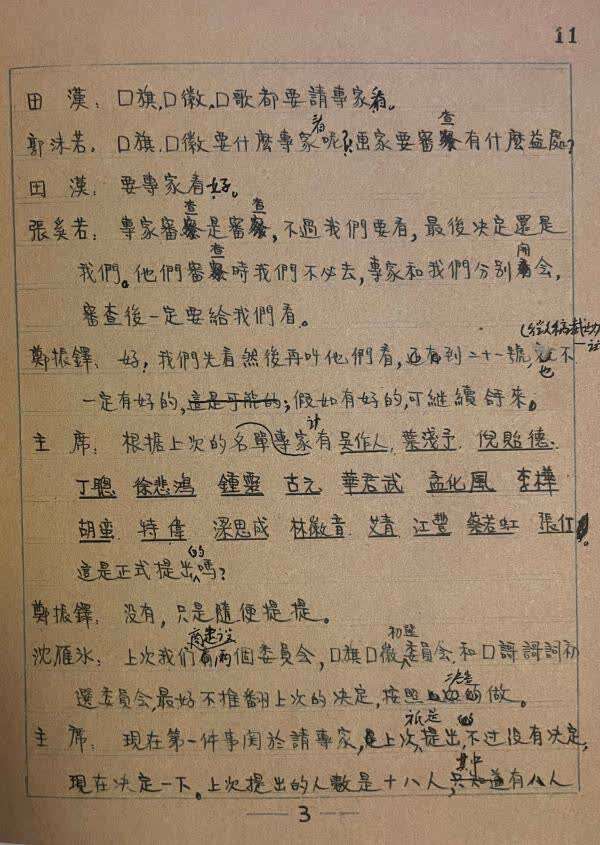 11
田　漢：口旗，口徽，口歌都要請專家看。
郭沫若：口旗，口徽要什麼專家看呢？畫家要審查有什麼益處？
田　漢：要專家看好。
張奚若：專家審查是審查，不過我們要看，最後決定還是
我們。他們審查時我們不必去，專家和我們分別開會，
審查後一定要給我們看。
鄭振鐸：好，我們先看然後再叫他們看，還有到二十一號，也不
一定有好的，這是可能的；假如有好的，可繼續歸來。
主　席：根据上次的名單專家計有吳作人 葉淺予 倪貽德
丁聰 徐悲鴻 鍾靈 古元 華君武 孟化風 李樺
胡蛮 特偉 梁思成 林徽音 艾青 江豐 蔡若虹 張仃
這是正式提出的嗎？
鄭振鐸：没有，只是隨便提提。
沈雁冰：上次我們有兩個委員會，口旗口徽初選委員會和口歌歌詞初
選委員會，最好不推翻上次的決定，按照決定做。
主　席：現在第一件事関於請專家，上次祇是提出，不过没有決定，
現在決定一下。上次提出的人數是十八人，其中有八人
3